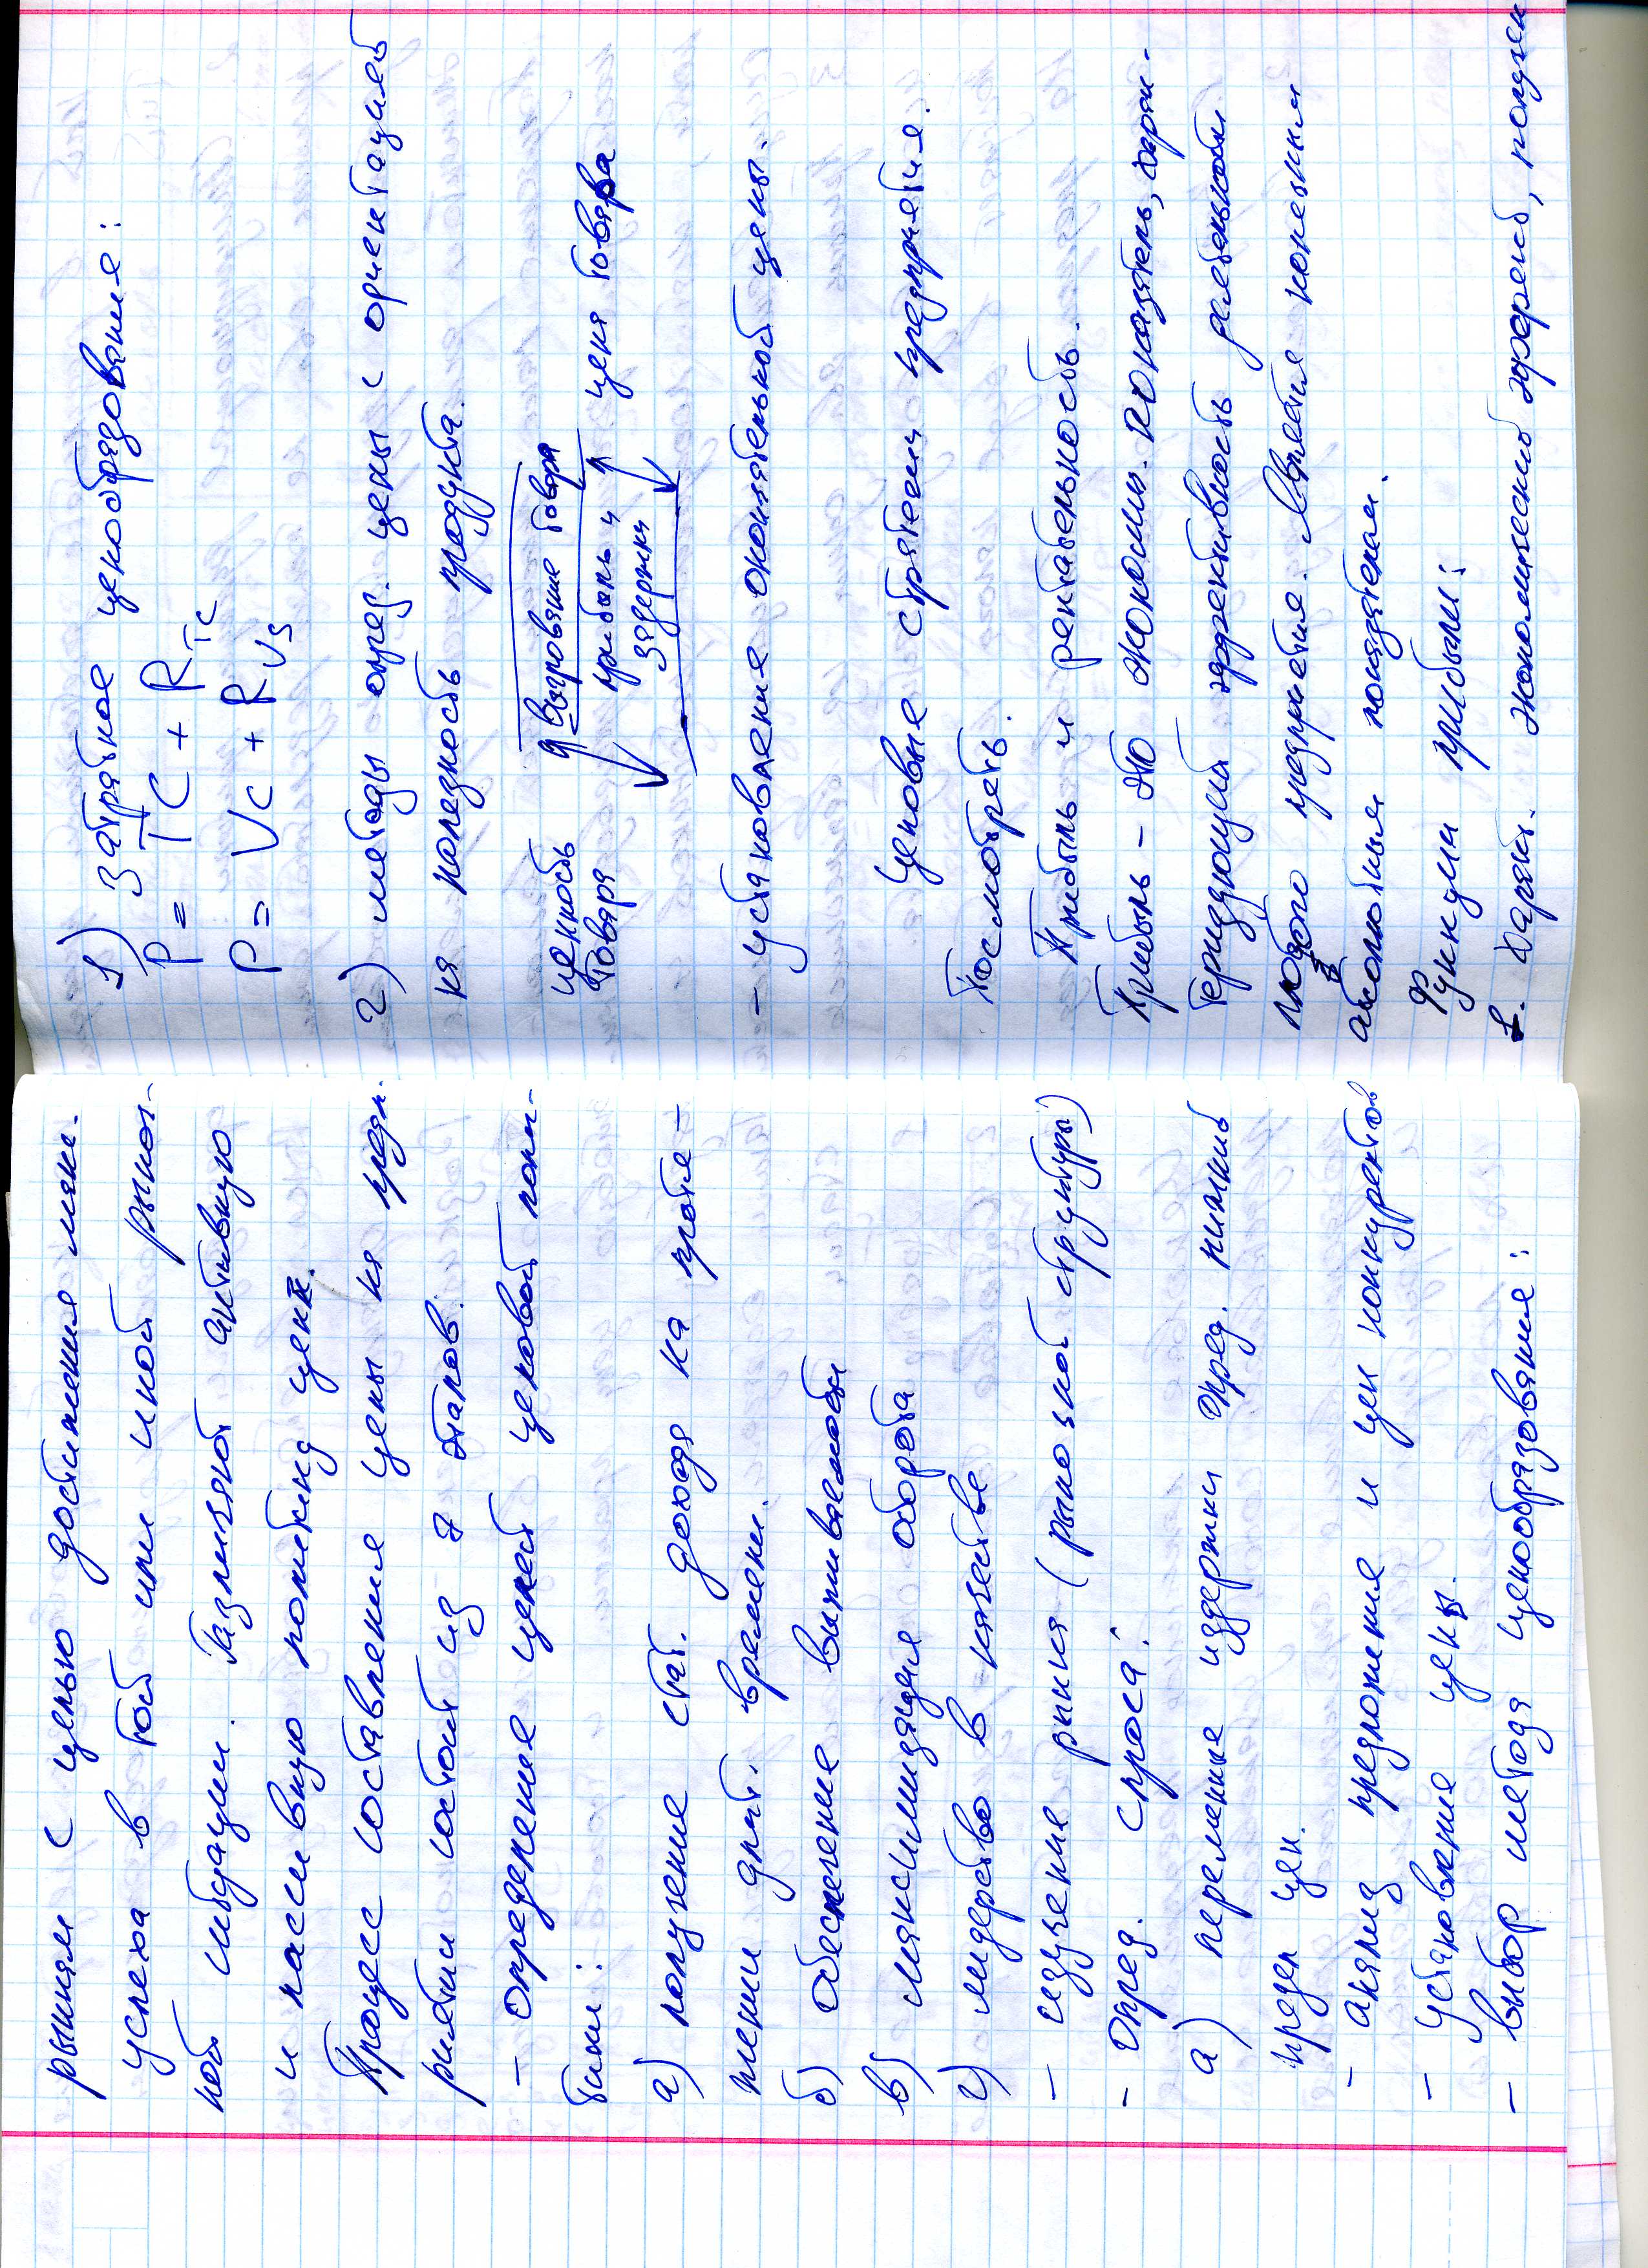 рынкам с целью достижения макс.
успеха в той или иной рыноч-
ной ситуации. Различают активную
и пассивную политику цен.
Процесс составления цены на предп-
риятии состоит из 7 этапов:
- Определение целей ценовой поли-
тики:
а) получение стаб. дохода на протя-
жении длит. времени.
б) Обеспечение выживаемости
в) максимизация оборота
г) лидерство в качестве
- изучение рынка (рыночной структуры)
- Опред. спроса:
а) переменные издержки опред. нижний
предел цен.
- анализ предложения и цен конкурентов
- Установление цены.
- выбор метода ценообразования:
1) Затратное ценообразование:
P = TC + R TC
P = VC + R VS
2) методы опред. цены с ориентацией
на полезность продукта.
ценность
товара
прибыль и
цена товара
- установление окончательной цены.
Ценовые стратегии предприятия.
Посмотреть.
Прибыль и рентабельность.
Прибыль - это экономич. показатель, харак-
теризующий эффективность деятельности
любого предприятия. Является конечным
абсолютным показателем.
Функции прибыли:
1. Характ. экономический эффект, получен